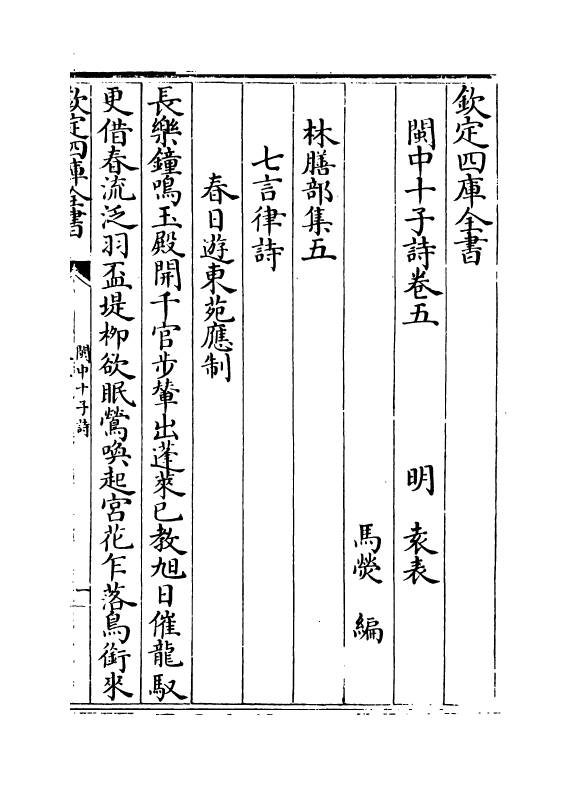 欽定四庫全書
閩中十子詩卷五
明 袁表
馬熒 編
林膳部集五
七言律詩
春日遊東苑應制
長樂鐘鳴玉殿開千官步輦出蓬萊已教旭日催龍馭
更借春流泛羽盃堤柳欲眠鶯喚起宮花乍落鳥銜來
欽定四庫全書
閩中十子詩
一